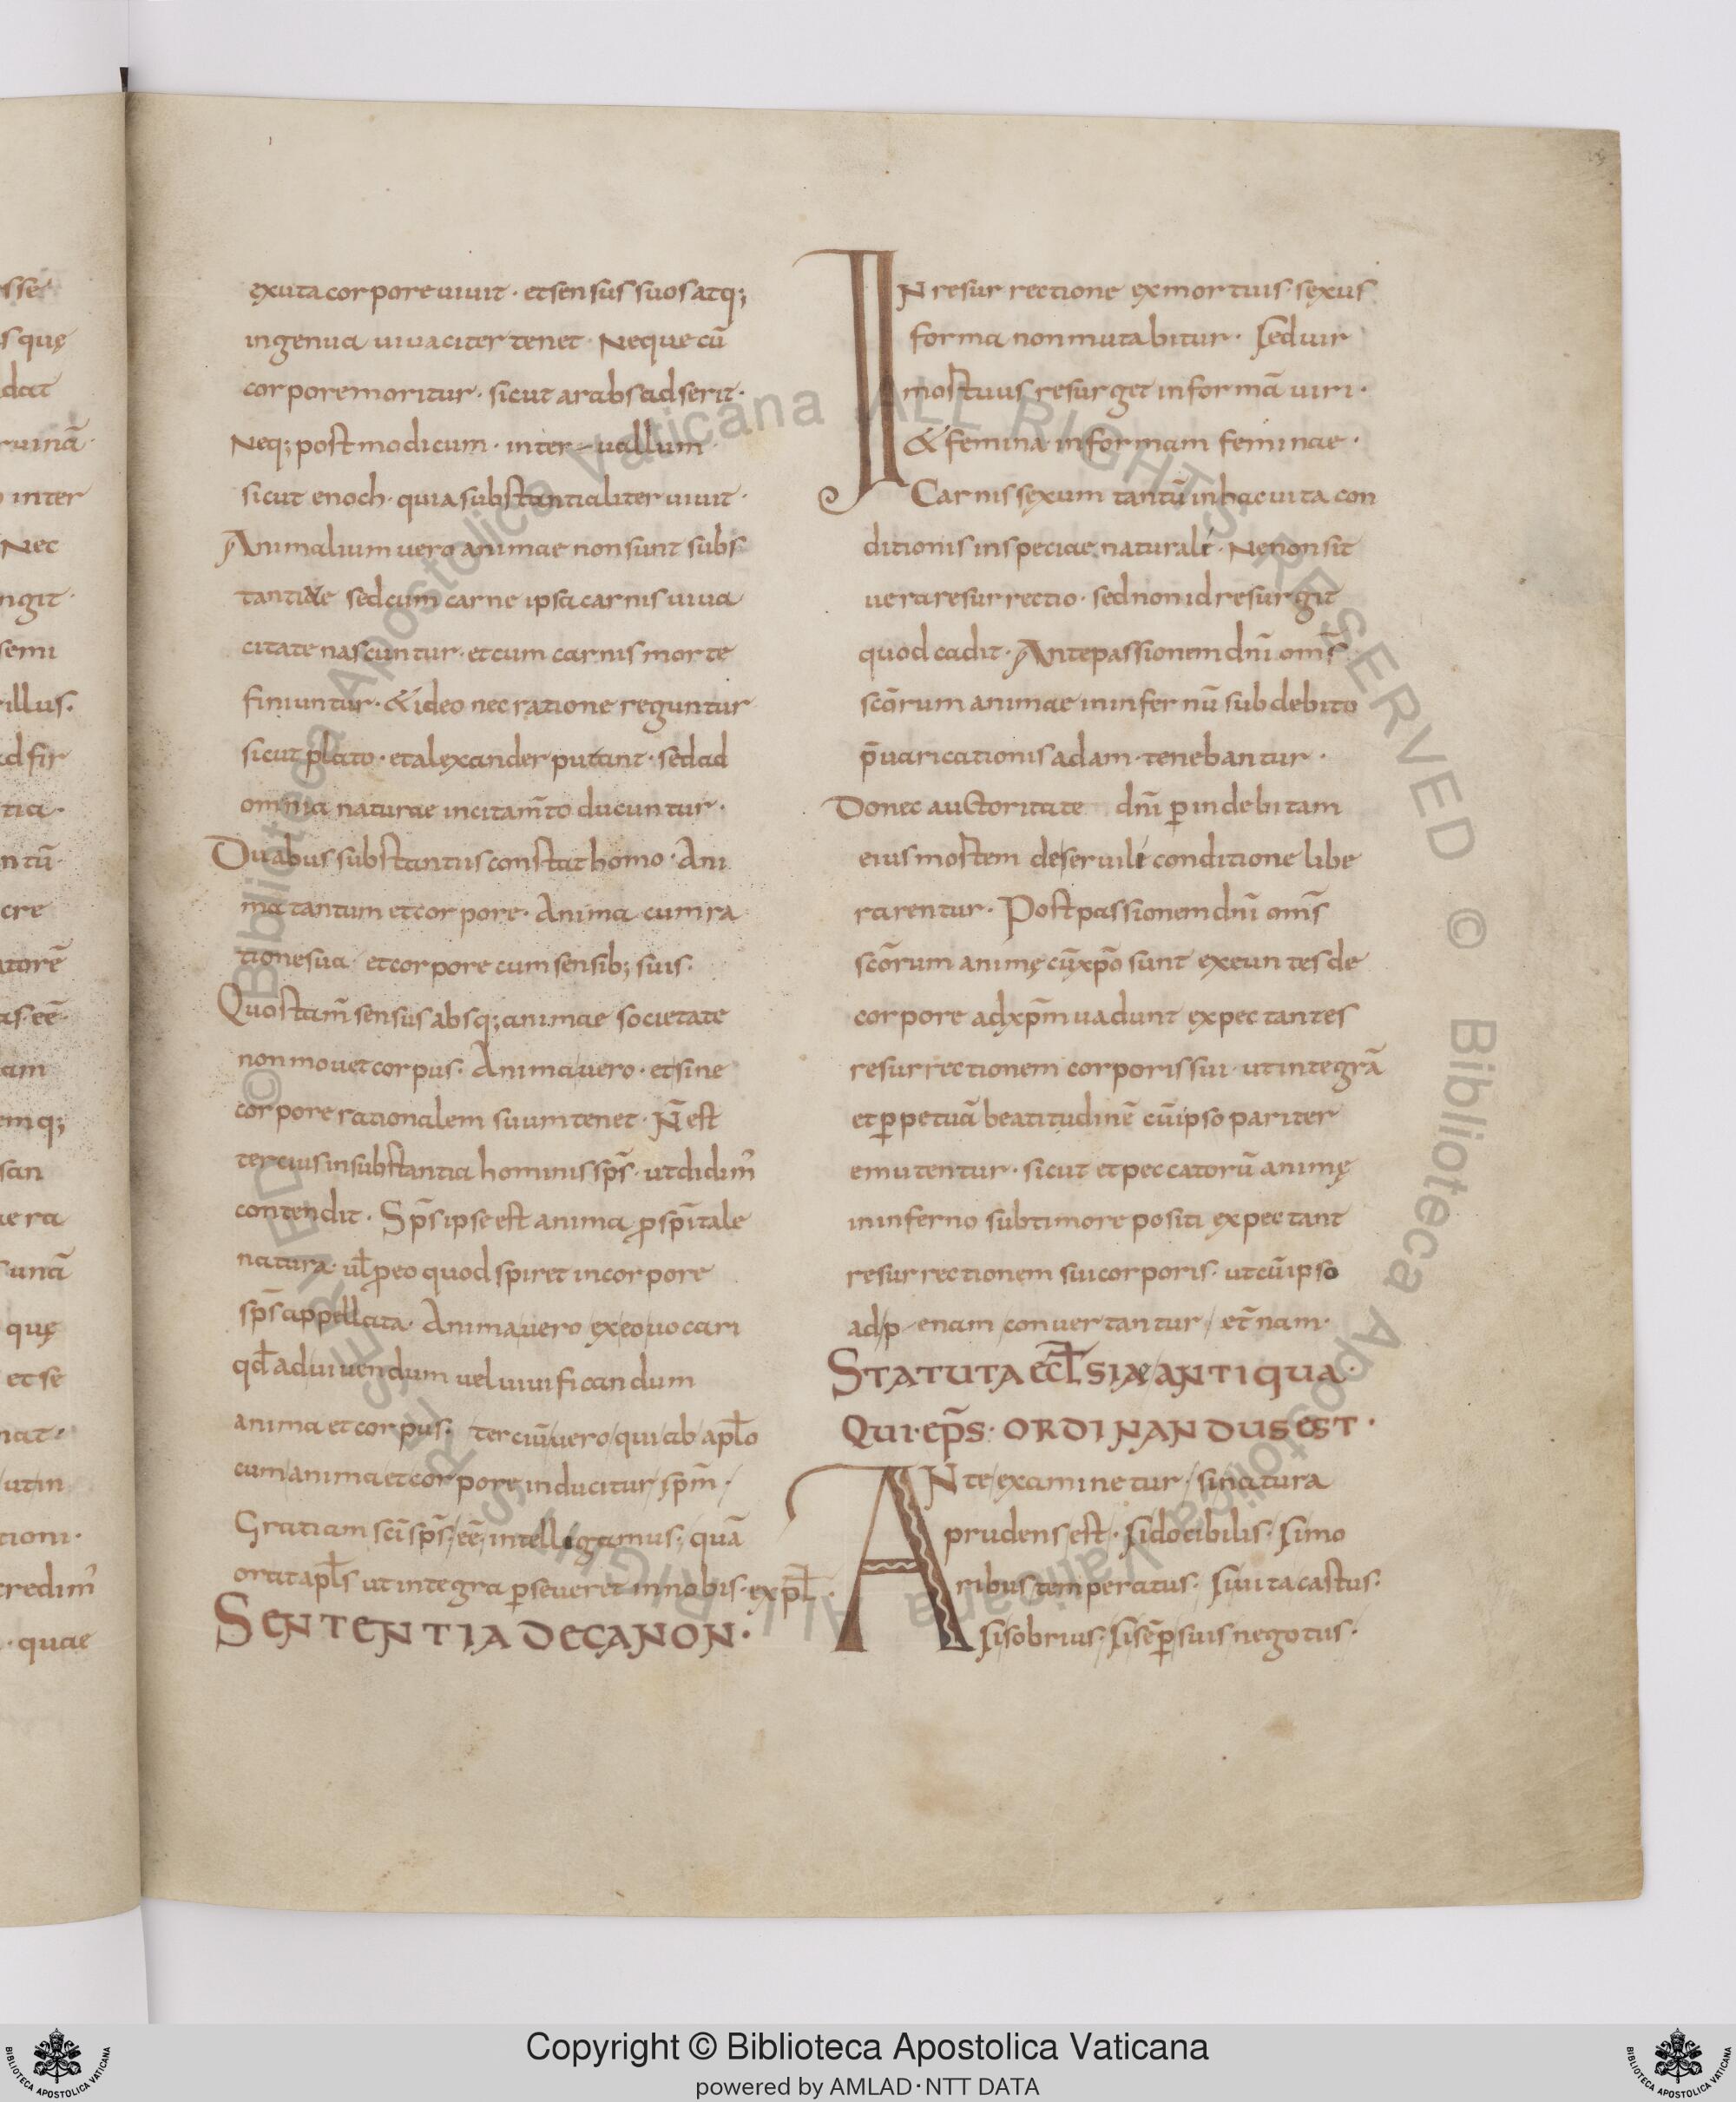 exuta corpore uiuit · et sensus suos atq;
ingenua uiuaciter tenet · Neque cū
corpore moritur · sicut arabs adserit ·
Neq; post modicum · inter uallum
sicut enoch · quia substantialiter uiuit ·
Animalium uero animae non sunt subs
tantiae sed cum carne ipsa carnis uiua
citate nascuntur · et cum carnis morte
finiuntur · & ideo nec ratione reguntur
sicut plato · et alexander putant · sed ad
omnia naturae incitam̄to ducuntur ·
Duabus substantiis constat homo · Ani
ma tantum et corpore · Anima cum ra
tione sua et corpore cum sensib; suis ·
Quos tam̄ sensus absq; animae societate
non mouet corpus · Anima uero · et sine
corpore rationalem suum tenet · N̄ est
tercius in substantia hominis sp̄s · ut didim'
contendit · Sp̄s ipse est anima ꝓ sp̄itale
natura · ul̄ ꝓ eo quod spiret in corpore
sp̄s appellata · Anima uero ex eo uocari
qd̄ ad uiuendum uel uiuificandum
anima et corpus · tercium̄ uero qui ab apl̄o
cum anima et corpore inducitur sp̄m ·
Gratiam sc̄i sp̄s eē intellegamus · quā
orat apl̄s ut integra ꝑseueret in nobis · expl̄ ·
SENTENTIA DE CANON ·
IN resurrectione ex mortuis · sexus
forma non mutabitur · Sed uir
mostuus resurget in formā uiri ·
& femina in formam feminae ·
Carnis sexum tantū in hac uita con
ditionis in speciae naturali · Ne non sit
uera resurrectio · sed non id resurgit
quod cadit · Ante passionem dn̄i om̄s
sc̄orum animae in infernū sub debito
p̄uaricationis adam · tenebantur ·
Donec auctoritate dn̄i ꝑ indebitam
eius mostem de seruili conditione libe
rarentur · Post passionem dn̄i om̄s
sc̄orum animę cū xp̄o sunt exeuntes de
corpore ad xp̄m uadunt expectantes
resurrectionem corporis sui · ut integrā
et ꝑpetuā beatitudinē cū ipso pariter
emutentur · sicut et peccatorū animę
in inferno sub timore positi expectant
resurrectionem sui corporis · ut cū ipso
ad p enam conuertantur et̄nam ·
STATUTA ECCL̄SIAE ANTIQUA ·
QUI EP̄S · ORDINANDUS EST ·
ANte examinetur · si natura
prudens est · Si docibilis · Si mo
ribus temperatus · Si uita castus ·
Si sobrius · Si sēꝑ suis negotus ·
Copyright © Biblioteca Apostolica Vaticana
powered by AMLAD·NTT DATA